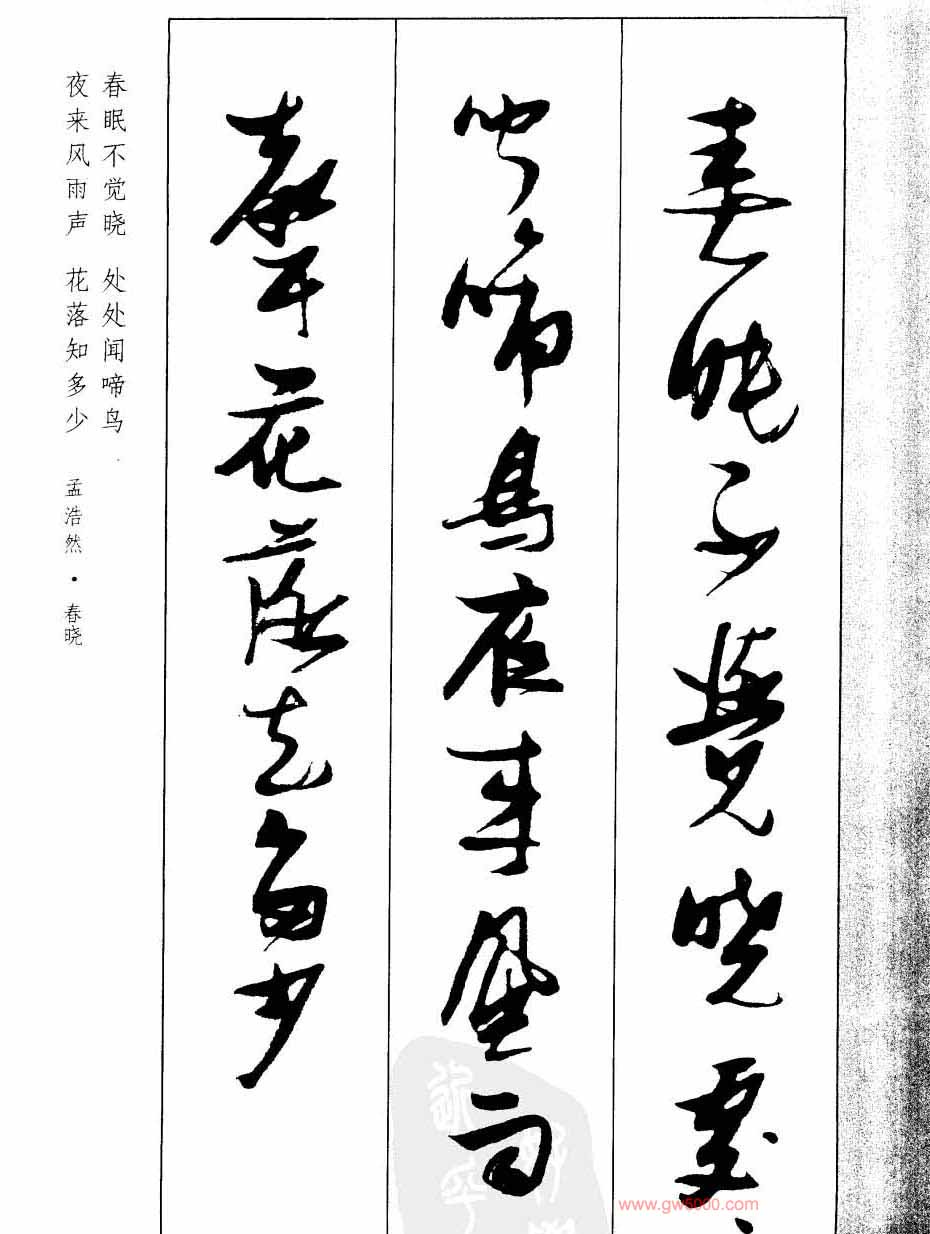 春眠不覺曉處〻
闻啼鳥夜来風雨
聲花落知多少
春眠不觉晓 处处闻啼鸟
夜来风雨声 花落知多少
孟浩然·春晓
www.gw5000.com